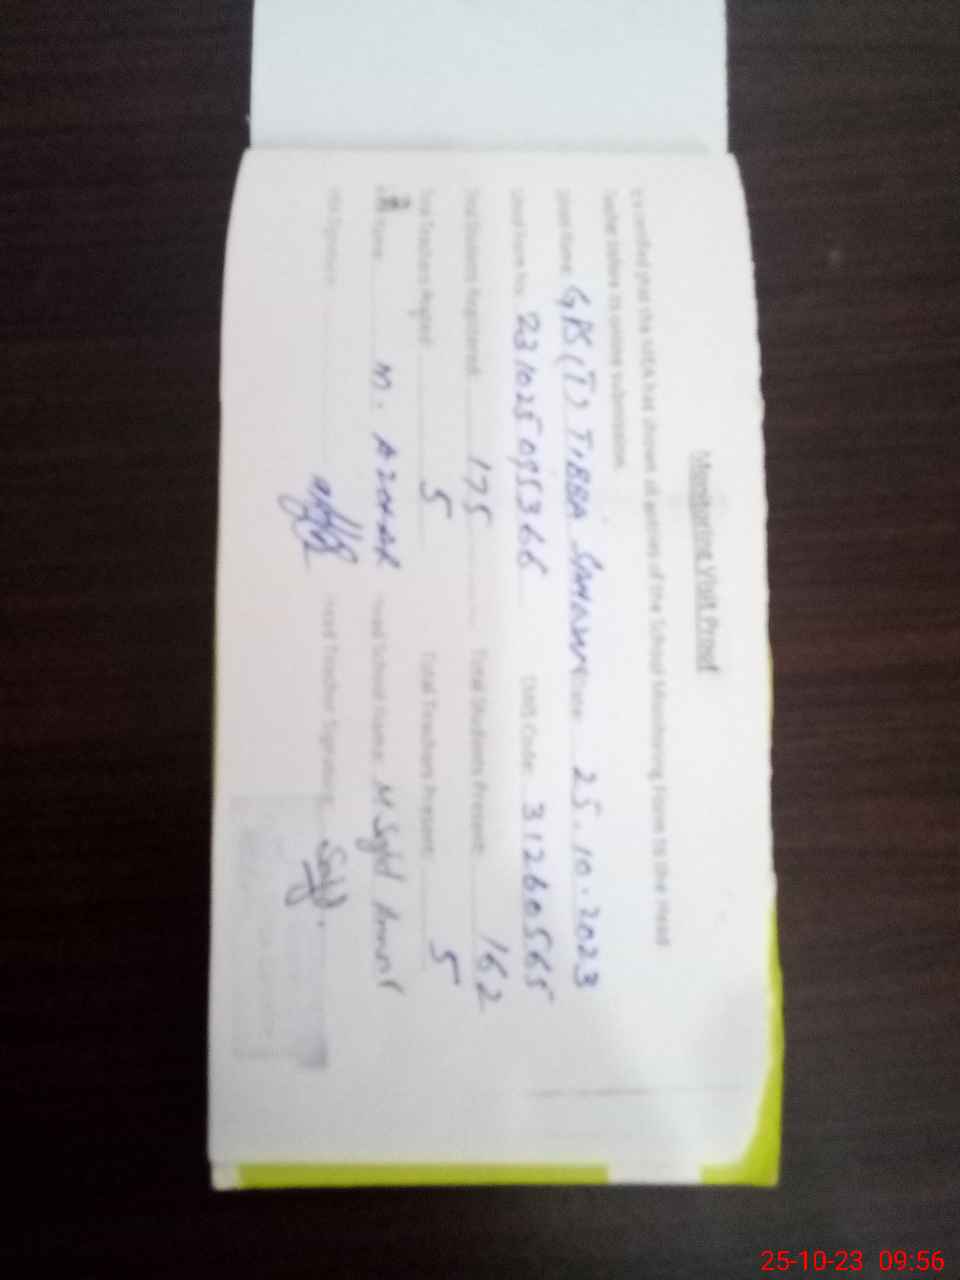 Monitoring Visit Proof
It is certified that the MEA has shown all entries of the School Monitoring Form to the Head
Teacher before its online submission.
School Name: GPS (T) TIBBA Date: 25.10.2023
EMIS Code: 31260565
Total Students Registered: 175 Total Students Present: 162
Total Teachers 5 Total Teachers Present: 5
Name: M. AZHAR Head School Name: M Sajid
Signature: Head Teacher Signature:
25-10-23 09:56